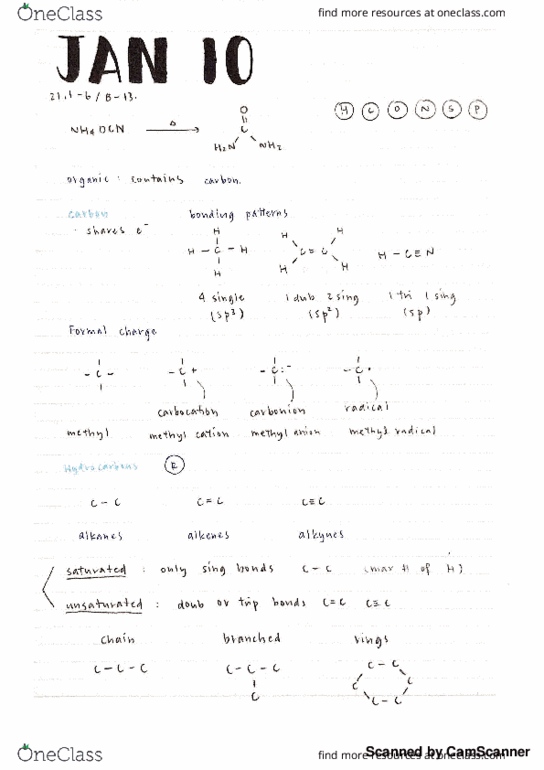 OneClass
find more resources at oneclass.com
JAN 10
21.1-6 / B-13.
H C O N S P
NH4 OCN Δ → O C H2N NH2
organic : contains carbon.
carbon bonding patterns
· shares e⁻
H
H – C – H
H
H H
C = C
H H
H – C ≡ N
4 single 1 dub 2 sing 1 tri 1 sing
(sp³) (sp²) (sp)
Formal charge
– C – – C + – C : – – C ·
carbocation carbonion radical
methyl methyl cation methyl anion methyl radical
Hydrocarbons R
C – C C = C C ≡ C
alkanes alkenes alkynes
saturated : only sing bonds C – C (max # of H)
unsaturated : doub or trip bonds C = C C ≡ C
chain branched rings
C – C – C C – C – C C – C
C C C
C – C
OneClass
find more resources at oneclass.com
Scanned by CamScanner